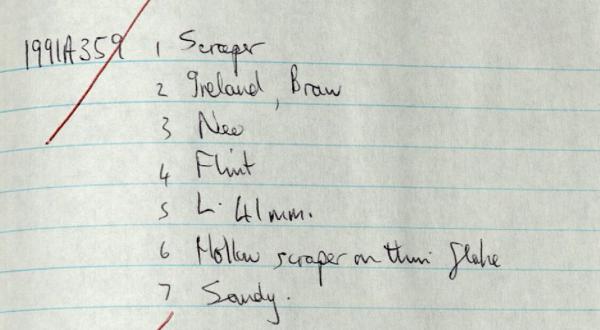 1991A359 1 Scraper
2 Ireland, Braw
3 Neo
4 Flint
5 L. 41mm.
6 Hollow scraper on thin flake
7 Sandy.